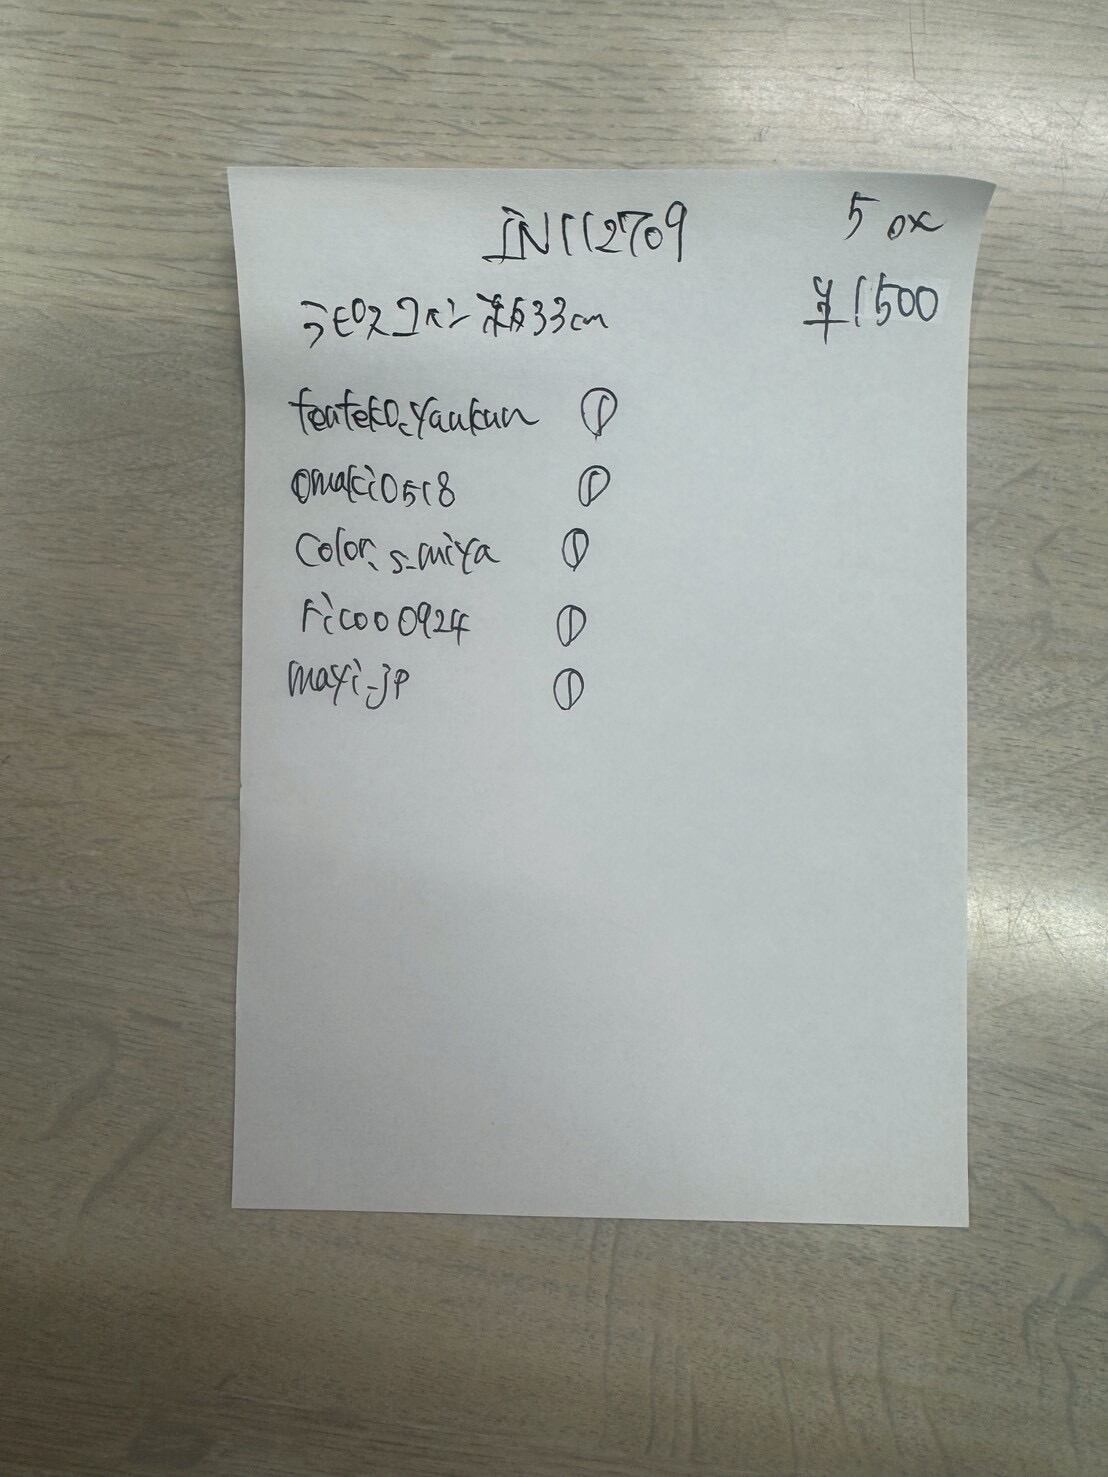 IN112709
5 ox
ラピスコイン 33cm
¥1500
teuteko.yaukun ①
omaki0518 ①
color.s_miya ①
rico00924 ①
mayi_jp ①